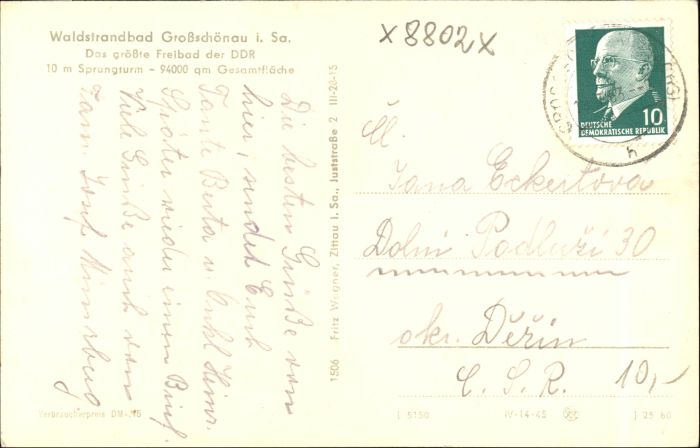 Waldstrandbad Großschönau i. Sa.
Das größte Freibad der DDR
10 m Sprungturm - 94000 qm Gesamtfläche
x 8802 x
10
DEUTSCHE
DEMOKRATISCHE REPUBLIK
h
Die besten Grüße von
hier, sendet Euch
Tante Berta u. Onkel Heinr.
Später wieder einen Brief.
Viele Grüße auch von
Fam. Josef
1506 Fritz Wagner, Zittau i. Sa., Juststraße 2 III-28-15
Jana Eckertova
Dolni Podluži 30
okr. Děčín
Č. S. R. 10,-
Verbraucherpreis DM -,15
J 5150 IV-14-45 J 25 60